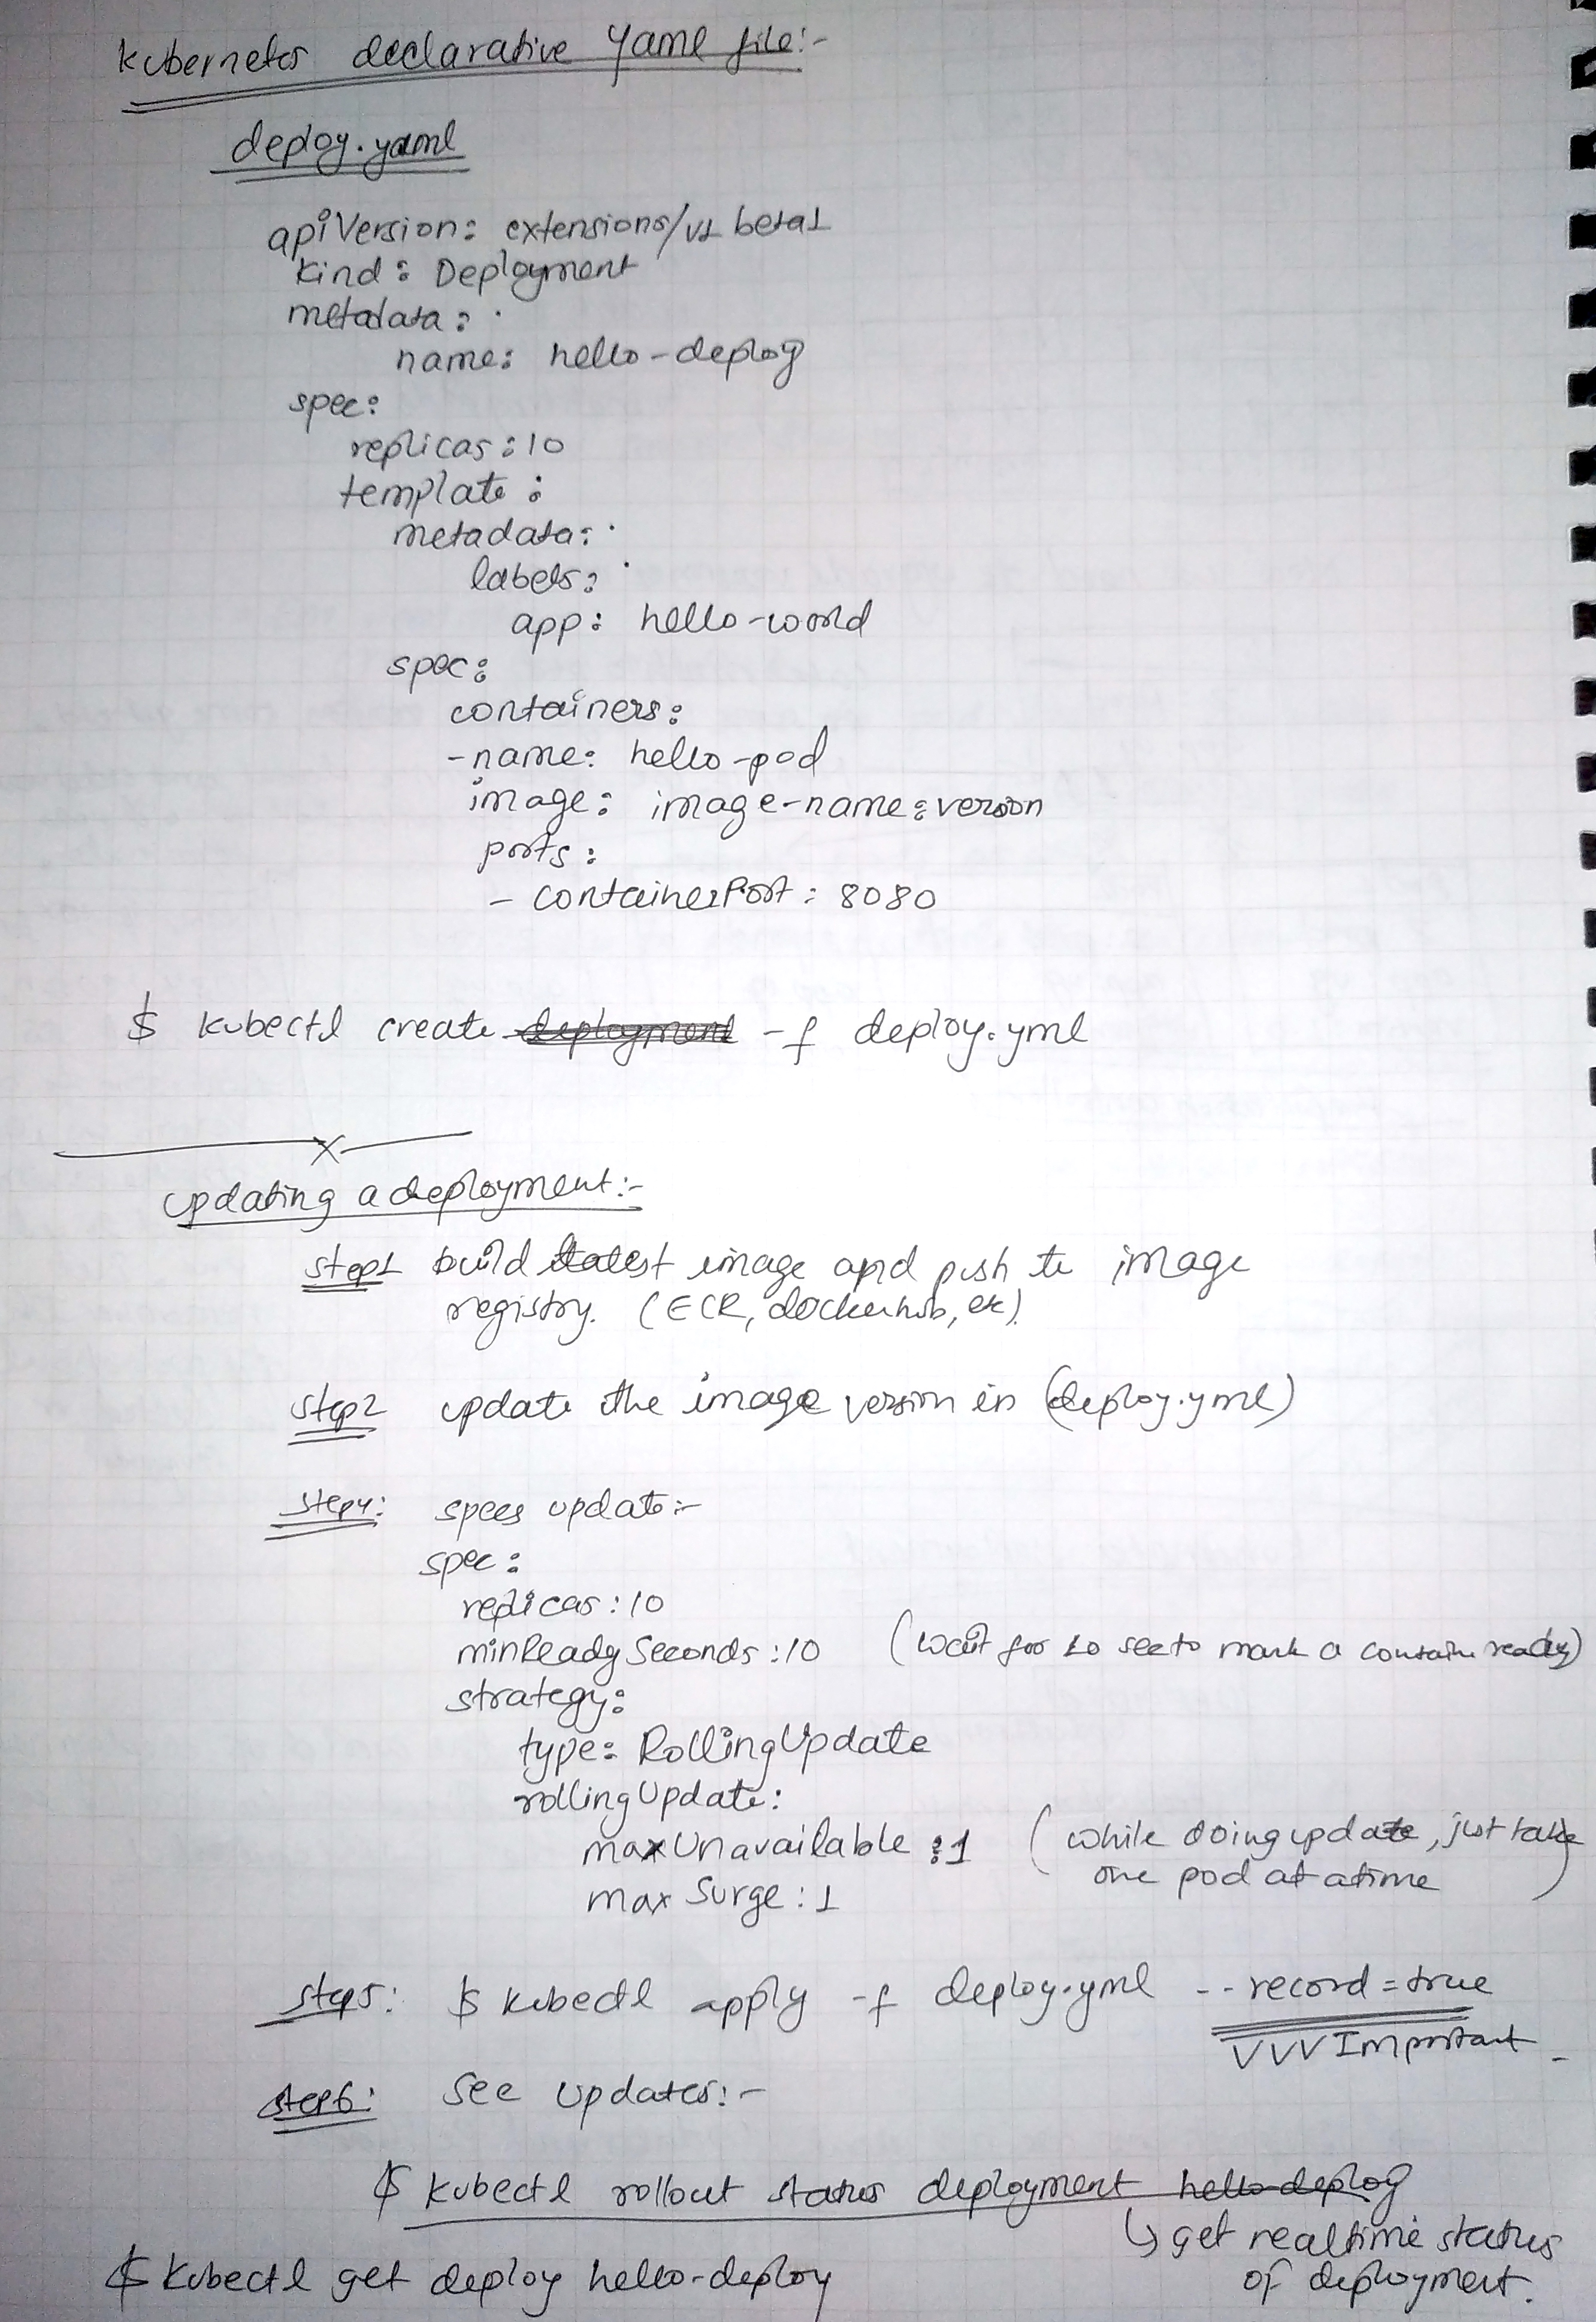 Kubernetes declarative Yaml file:-
deploy.yaml
apiVersion: extensions/v1beta1
kind: Deployment
metadata:
name: hello-deploy
spec:
replicas: 10
template:
metadata:
labels:
app: hello-world
spec:
containers:
- name: hello-pod
image: image-name:version
ports:
- containerPort: 8080
$ kubectl create deployment -f deploy.yml
updating a deployment:-
step1 build latest image and push to image
registry. (ECR, dockerhub, etc).
step2 update the image version in (deploy.yml)
step4: specs update:-
spec:
replicas: 10
minReadySeconds: 10 (wait for 10 sec to mark a contain ready)
strategy:
type: RollingUpdate
rollingUpdate:
maxUnavailable: 1 (while doing update, just take
one pod at a time)
maxSurge: 1
step5: $ kubectl apply -f deploy.yml --record=true
VVV Important
step6: see updates:-
$ kubectl rollout status deployment hello-deploy
↳ get realtime status
of deployment.
$ kubectl get deploy hello-deploy